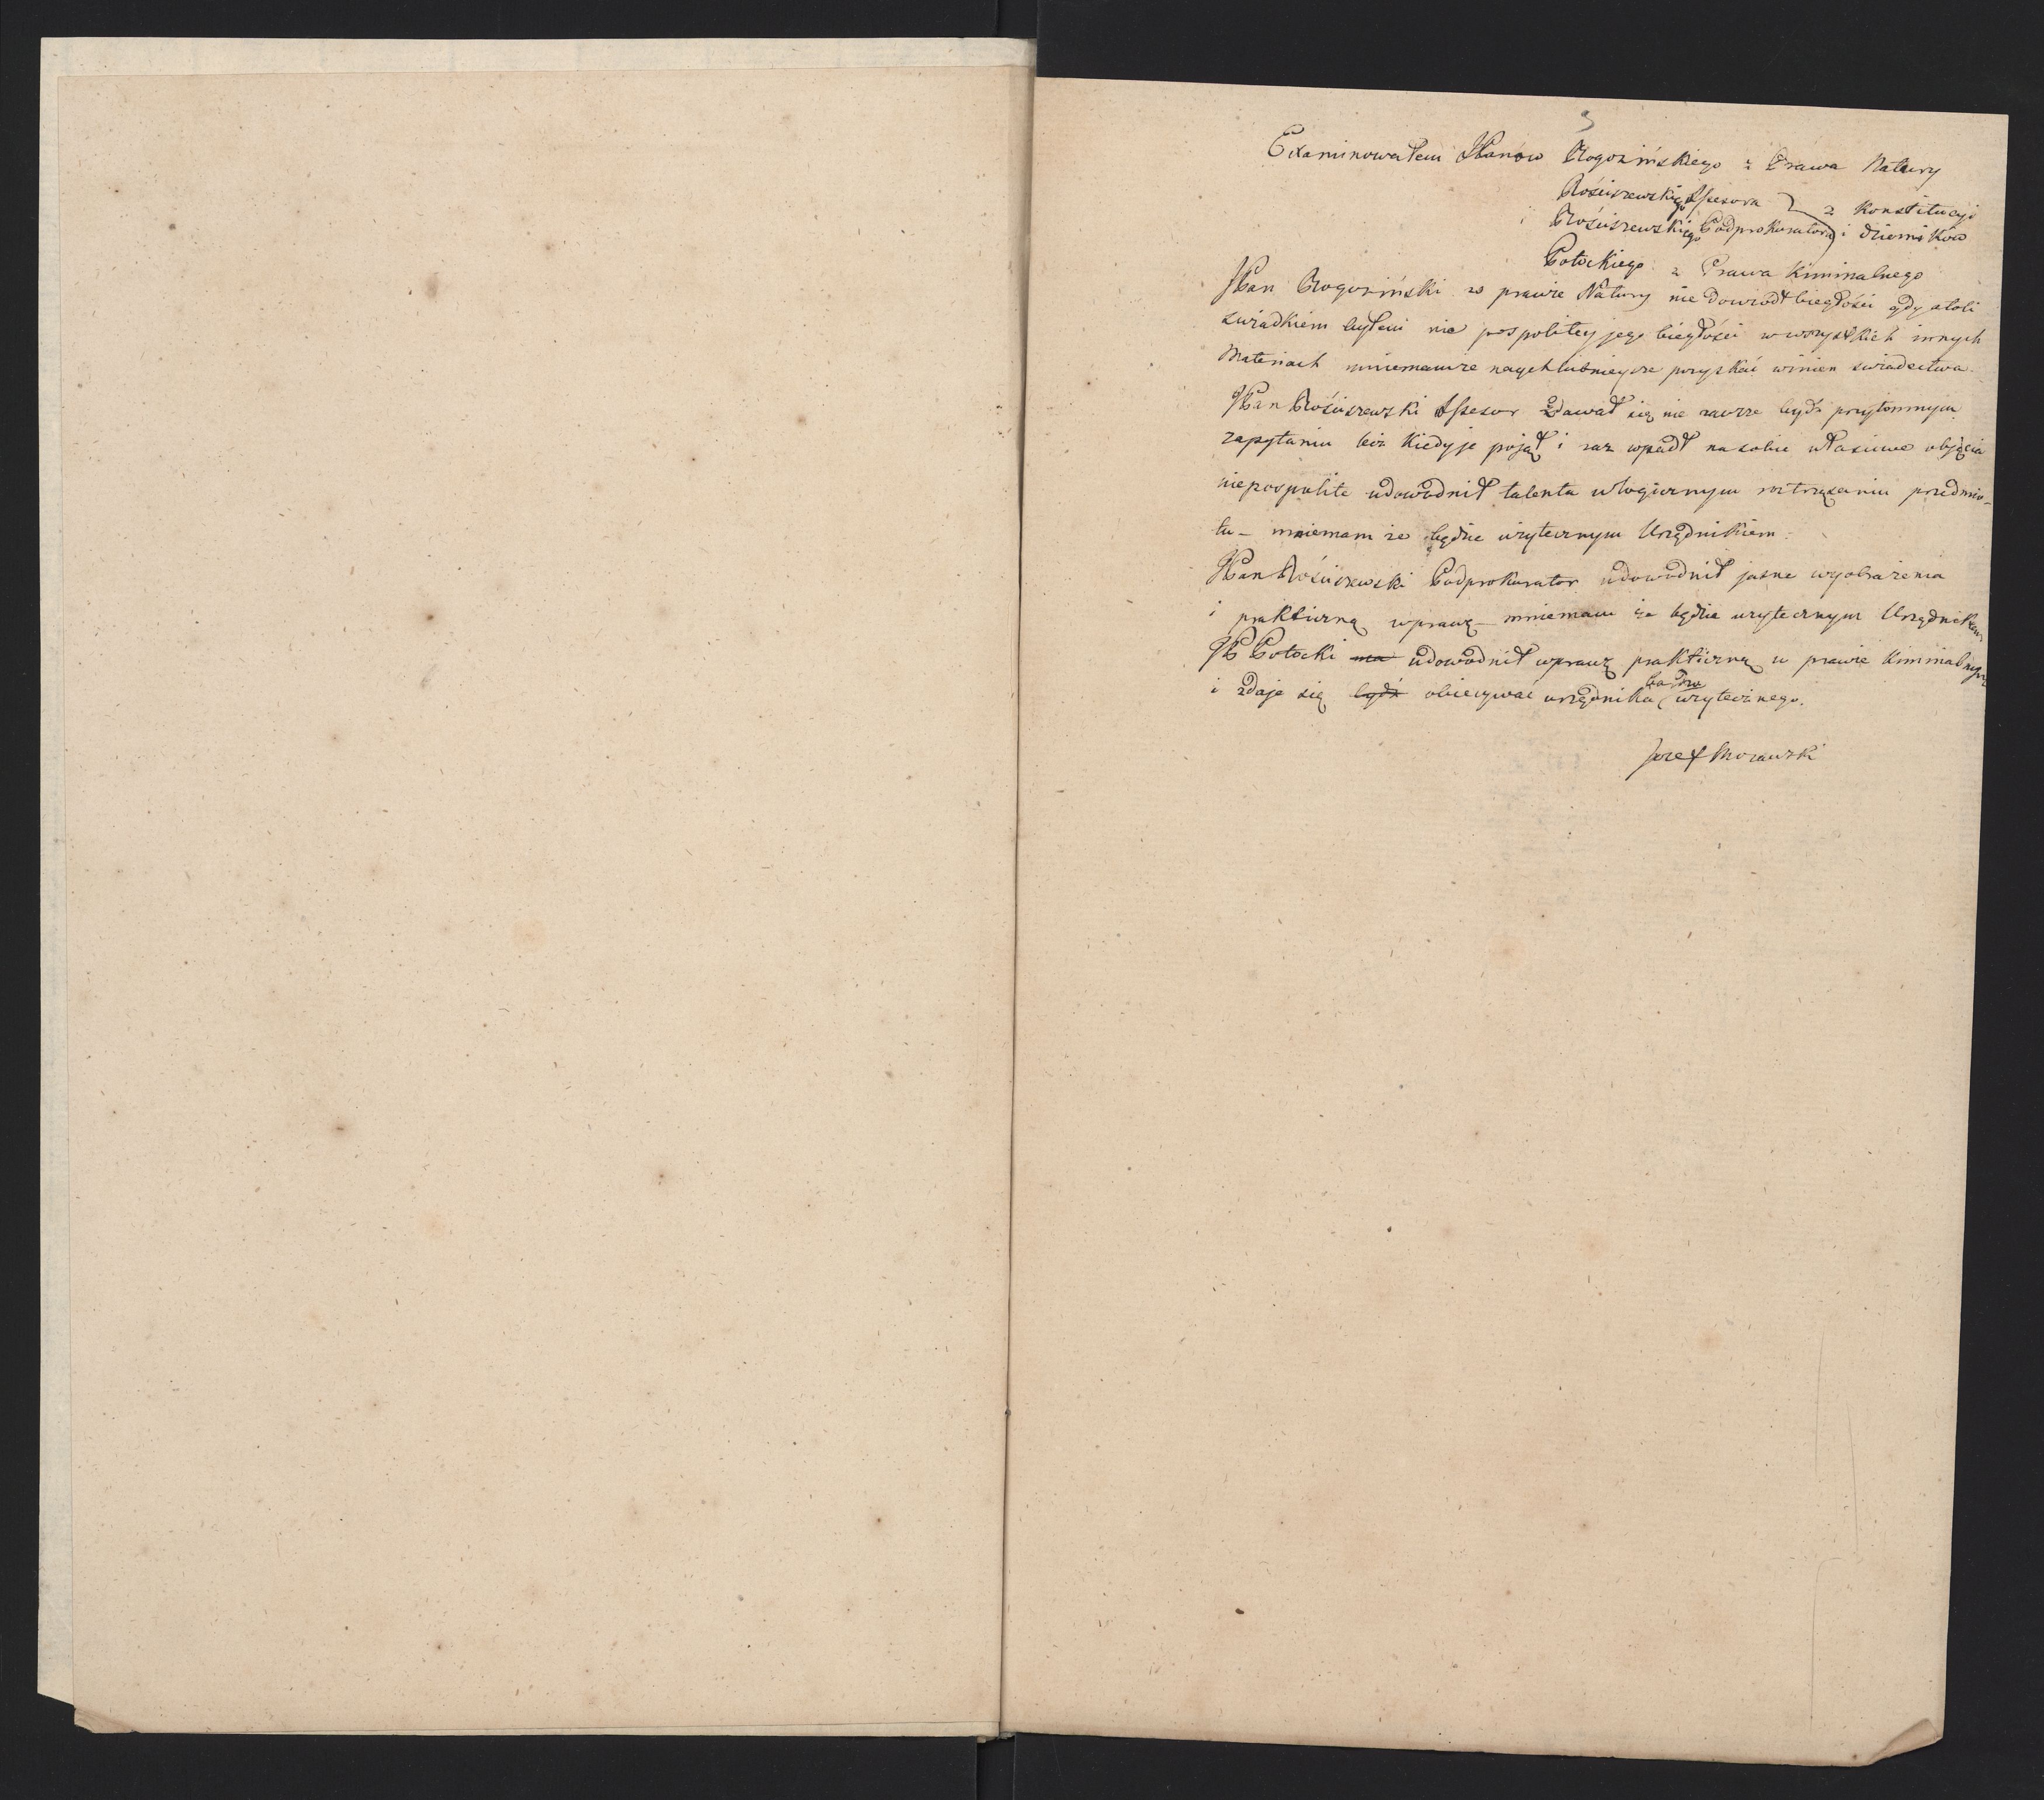 Examinowałem JPanów Rogozińskiego z Prawa Natury
Rościszewskiego Assesora } z Konstitucyi
i Rościszewskiego Podprokuratora i dzienników
Potockiego z Prawa Kriminalnego
JPan Rogoziński w prawie Natury nie dowiódł biegłości gdy atoli
świadkiem byłem nie pospolitey jego biegłości w wszystkich innych
Materiach mniemam że naychlubnieysze pozyskać winien świadectwa.
JPan Rościszewski Assesor zdawał się nie zawsze bydź przytomnym
zapytaniu lecz kiedy je pojął i raz wpadł na sobie właściwe objęcia
niepospolite udowodnił talenta w logicznym roztrząsaniu przedmio-
tu – mniemam że będzie użytecznym Urzędnikiem.
JPan Rościszewski Podprokurator udowodnił jasne wyobrażenia
i prakticzną wprawę – mniemam że będzie użytecznym Urzędnikiem
JP Potocki ma udowodnił wprawę prakticzną w prawie kriminalnym
i zdaje się bydź obiecywać urzędnika bardzo użytecznego.
Jozef Morawski